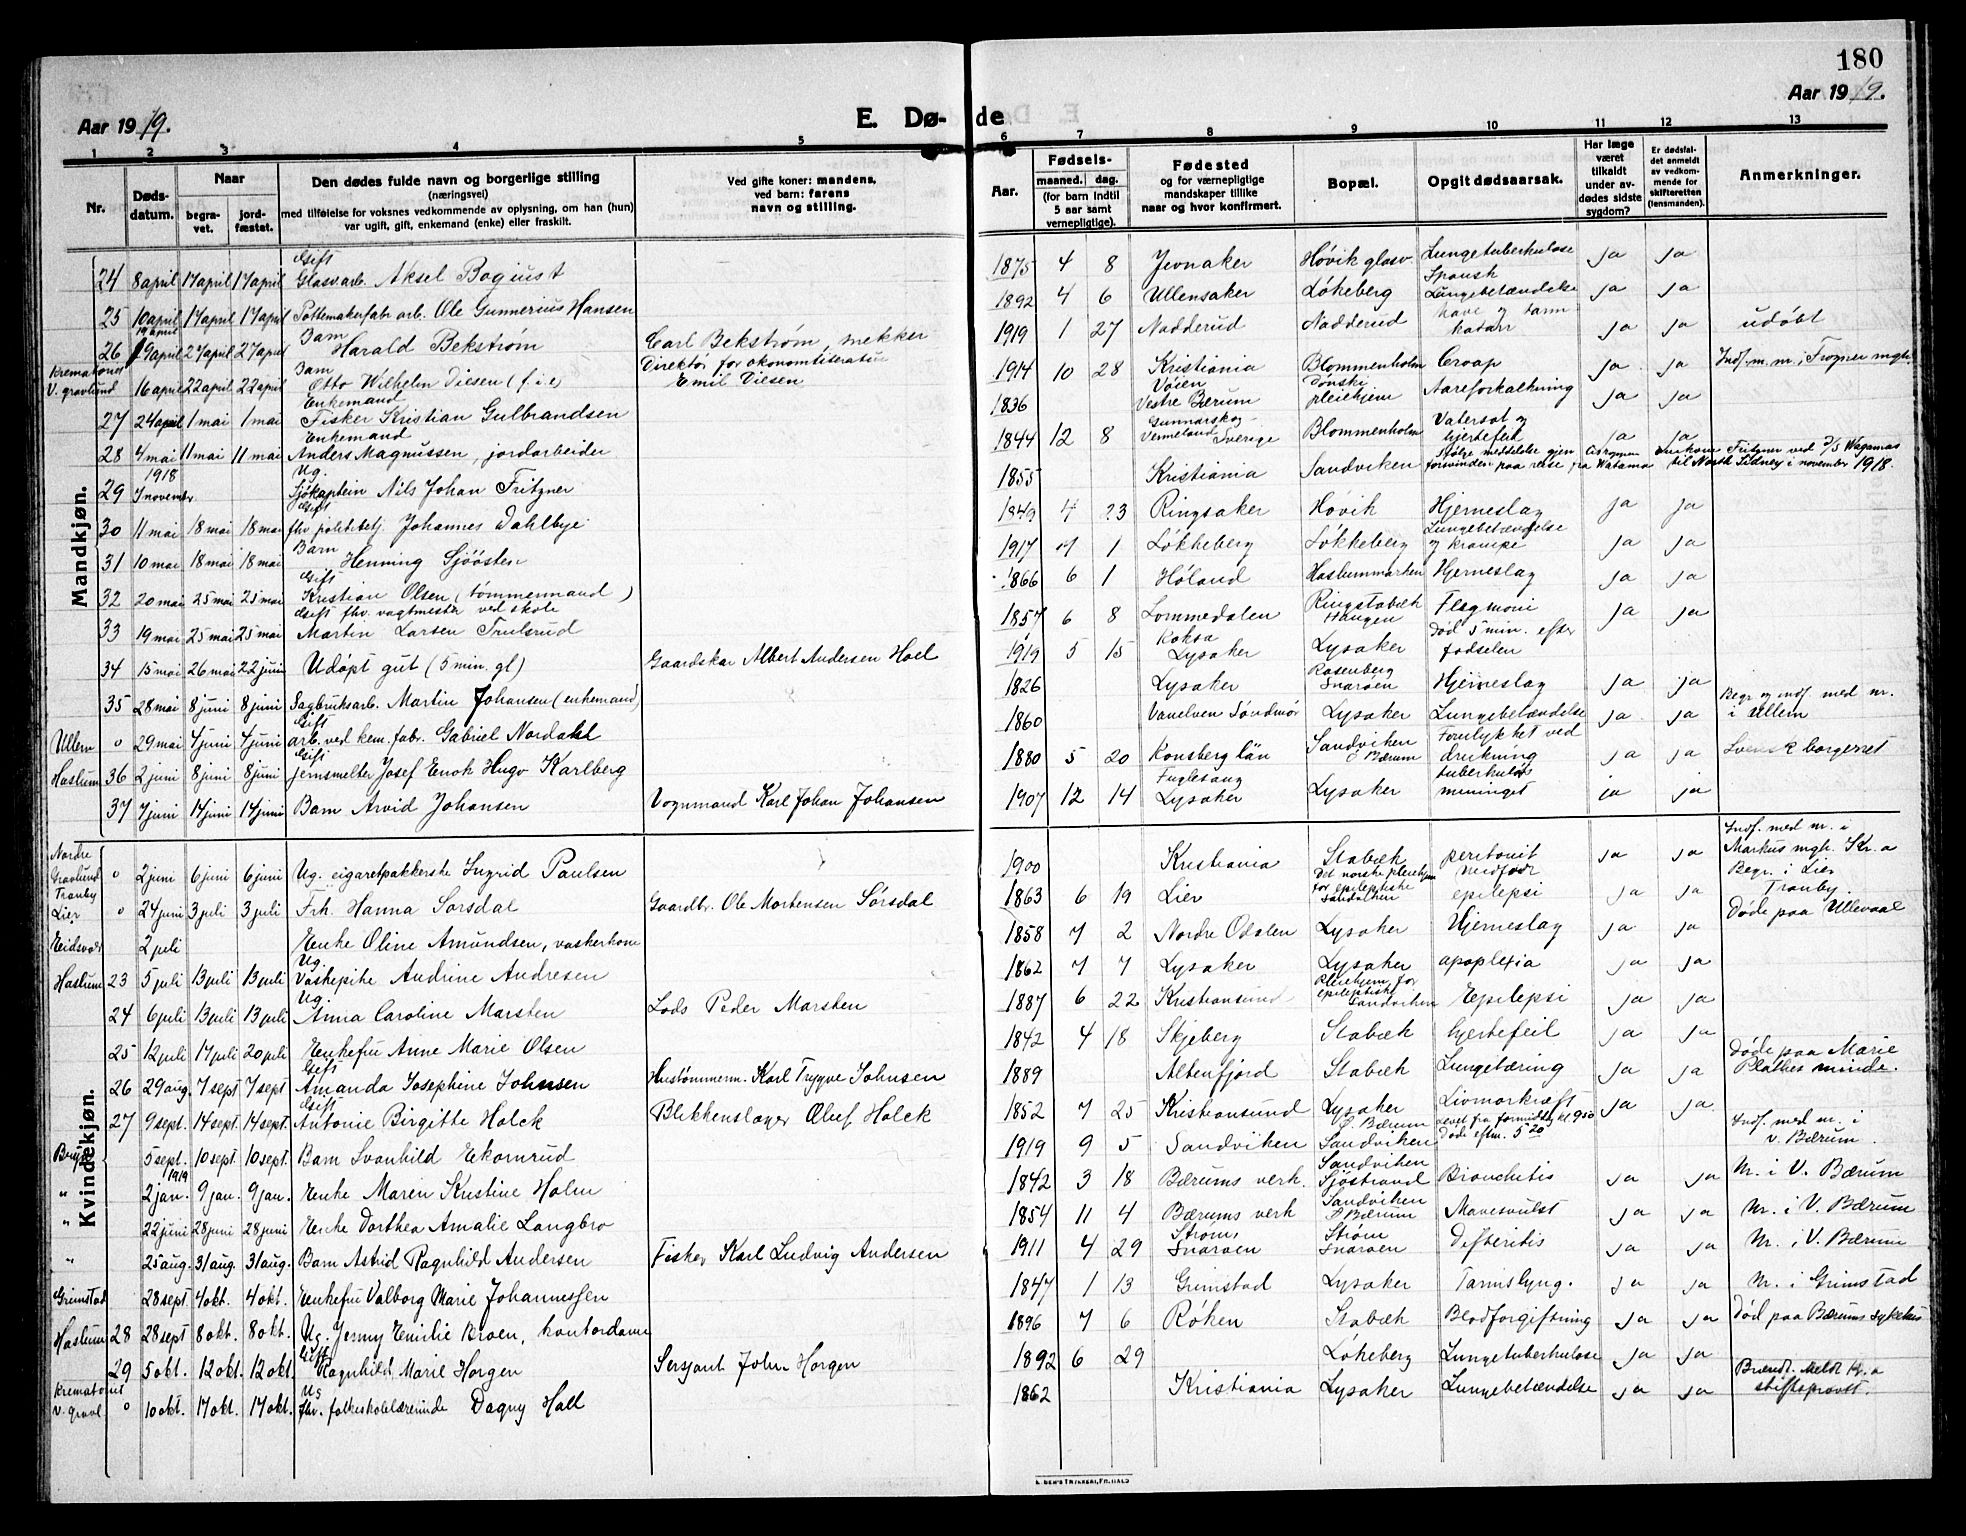 180
Aar 1919.
E. Dø-
de
Aar 1919.
1 2 3 4 5 6 7 8 9 10 11 12 13
Nr.
Døds-
datum.
Naar
begra-
vet.
jord-
fæstet.
Den dødes fulde navn og borgerlige stilling
(næringsvei)
med tilføielse for voksnes vedkommende av oplysning, om han (hun)
var ugift, gift, enkemand (enke) eller fraskilt.
Ved gifte koner: mandens,
ved barn: farens
navn og stilling.
Aar.
Fødsels-
maaned. dag.
(for barn indtil
5 aar samt
vernepligtige).
Fødested
og for værnepligtige
mandskaper tillike
naar og hvor konfirmert.
Bopæl.
Opgit dødsaarsak.
Har læge
været
tilkaldt
under av-
dødes sidste
sygdom?
Er dødsfal-
det anmeldt
av vedkom-
mende for
skifteretten
(lensmanden).
Anmerkninger.
Mandkjøn.
24 8 april 17 april 17 april Gift Glasv.arb. Aksel Bogiust 1875 4 8 Jevnaker Høvik glasv. Lungetuberkulose ja ja
25 10 april 17 april 17 april Pottemakerfabr. arb. Ole Gunnerius Hansen 1892 4 6 Ullensaker Løkeberg Spansk Lungebetændelse ja ja
26 19 april 27 april 27 april Barn Harald Bekstrøm Carl Bekstrøm, snekker 1919 1 27 Nadderud Nadderud mave og tarm katarr ja ja udøbt
Krematoriet V. gravlund 16 april 22 april 22 april Barn Otto Wilhelm Diesen (f. i. e) Direktør for økonomliteratur Emil Diesen 1914 10 28 Kristiania Blommenholm Croup ja ja Indf. m. nr. i Frogner mgh.
27 24 april 1 mai 1 mai Enkemand Fisker Kristian Gulbrandsen 1836 Vøien Vestre Bærum Dønski pleiehjem Aareforkalkning ja ja
28 4 mai 11 mai 11 mai Enkemand Anders Magnussen, jordarbeider 1844 12 8 Gunnarskog Vermeland Sverige Blommenholm Vatersot og hjertefeil ja ja
29 1918 7 november Ug. Sjøkaptein Nils Johan Fritzner 1855 Kristiania Sandviken forsvinden paa reise fra Wabana til North Sidney i november 1918.
30 11 mai 18 mai 18 mai Gift fhv. politibetj. Johannes Dahlbye 1849 4 23 Ringsaker Høvik Hjerneslag ja ja
31 10 mai 18 mai 18 mai Barn Henning Sjøøsten 1917 7 1 Løkkeberg Løkkeberg Lungebetændelse og krampe ja ja
32 20 mai 25 mai 25 mai Gift Kristian Olsen (tømmermand) 1866 6 1 Høland Haslummarken Hjerneslag ja ja
33 19 mai 25 mai 25 mai Gift fhv. vagtmester ved skole Martin Larsen Trulsrud 1857 6 8 Lommedalen Ringstabæk Haugen Flegmoni ja ja
34 15 mai 26 mai 22 juni Udøpt gut (5 min. gl) Gaardskar Albert Andersen Hoel 1919 5 15 Koksa Lysaker Lysaker død 5 min. efter fødselen
35 28 mai 8 juni 8 juni Sagbruksarb. Martin Johansen (enkemand) 1826 Lysaker Rosenberg Snarøen Hjerneslag ja ja
Ullern 0 29 mai 4 juni 4 juni Gift arb. ved kem. fabr. Gabriel Nordahl 1860 Vanelven Søndmør Lysaker Lungebetændelse ja ja Begr. og indf. med nr. i Ullern
Haslum 36 2 juni 8 juni 8 juni Gift jernsmelter Josef Enok Hugo Karlberg 1880 5 20 Konsberg län Sandviken Ø Bærum Forulykket ved drukning ja ja Svensk borgerret
37 7 juni 14 juni 14 juni Barn Arvid Johansen Vognmand Karl Johan Johansen 1907 12 14 Fuglesang Lysaker Lysaker tuberkuløs meninget ja ja
Kvindekjøn.
Nordre Gravlund 0 2 juni 6 juni 6 juni Ug. cigaretpakkerske Ingrid Paulsen 1900 Kristiania Stabæk peritonit ja ja Indf. med nr. i Markus mgh. Kr.a
Tranby Lier 0 24 juni 3 juli 3 juli Frk. Hanna Sørsdal Gaardbr. Ole Mortensen Sørsdal 1863 6 19 Lier Det norske pleiehjem for epileptiske Sandviken medfødt epilepsi ja ja Begr. i Lier Tranby.
Eidsvold 2 juli Enke Oline Amundsen, vaskerkone 1858 7 2 Nordre Odalen Lysaker Hjerneslag ja ja Døde paa Ullevaal
Haslum 23 5 juli 13 juli 13 juli Ug. Vaskepike Andrine Andresen 1862 7 7 Lysaker Lysaker apoplexia ja ja
24 6 juli 13 juli 13 juli Ug. Anna Caroline Marsten Lods Peder Marsten 1887 6 22 Kristiansund Pleiehjem for epileptiske Sandviken Epilepsi ja ja
25 12 juli 17 juli 20 juli Enkefru Anne Marie Olsen 1842 4 18 Skjeberg Stabæk hjertefeil ja ja
26 29 aug. 7 sept 7 sept Gift Amanda Josephine Johnsen Hustømmerm. Karl Trygve Johnsen 1889 Altenfjord Stabæk Lungetæring ja ja Døde paa Marie Plathes minde.
27 9 sept. 14 sept. 14 sept. Gift Antonie Birgitte Holck Blikkenslager Oluf Holck 1852 7 25 Kristiansund Lysaker Livmorkræft ja ja
5 sept. 10 sept. 10 sept. Barn Svanhild Ekornrud 1919 9 5 Sandviken Ø. Bærum Sandviken Levet fra formiddag kl. 9 50 Døde eftm. 5 20 Indf. med nr. i V. Bærum.
" 1919 2 jan. 9 jan. 9 jan. Enke Maren Kristine Holm 1842 3 18 Bærums verk. Sandviken Sjøstrand Bronchitis ja ja Nr. i V. Bærum
" 22 juni 28 juni 28 juni Enke Dorthea Amalie Langbro 1854 11 4 Bærums verk Sandviken Ø Bærum Mavesvulst ja ja Nr. i V. Bærum
" 25 aug. 31 aug. 31 aug. Barn Astrid Ragnhild Andersen Fisker Karl Ludvig Andersen 1911 4 29 Strøm Snarøen Strøm Snarøen Difteritis ja ja Nr. i V. Bærum
Grimstad 28 sept. 4 okt. 4 okt. Enkefru Valborg Marie Johannessen 1847 1 13 Grimstad Lysaker Tarmslyng. ja ja Nr. i Grimstad
Haslum 28 28 sept 8 okt. 8 okt. Ug. Jenny Emilie Braen, kontordame 1896 7 6 Røken Stabæk Blodforgiftning ja ja Død paa Bærums sykehus
29 5 okt. 12 okt. 12 okt. Gift Ragnhild Marie Horgen Sersjant John Horgen 1892 6 29 Løkeberg Lungetuberkulose ja ja
Krematoriet V. gravl 0 10 okt. 17 okt. 17 okt. Ug fhv. folkeskolelærerinde Dagny Hall 1862 Kristiania Lysaker Lungebetændelse ja ja Brændt. Meldt Kr.a stiftsprovst.